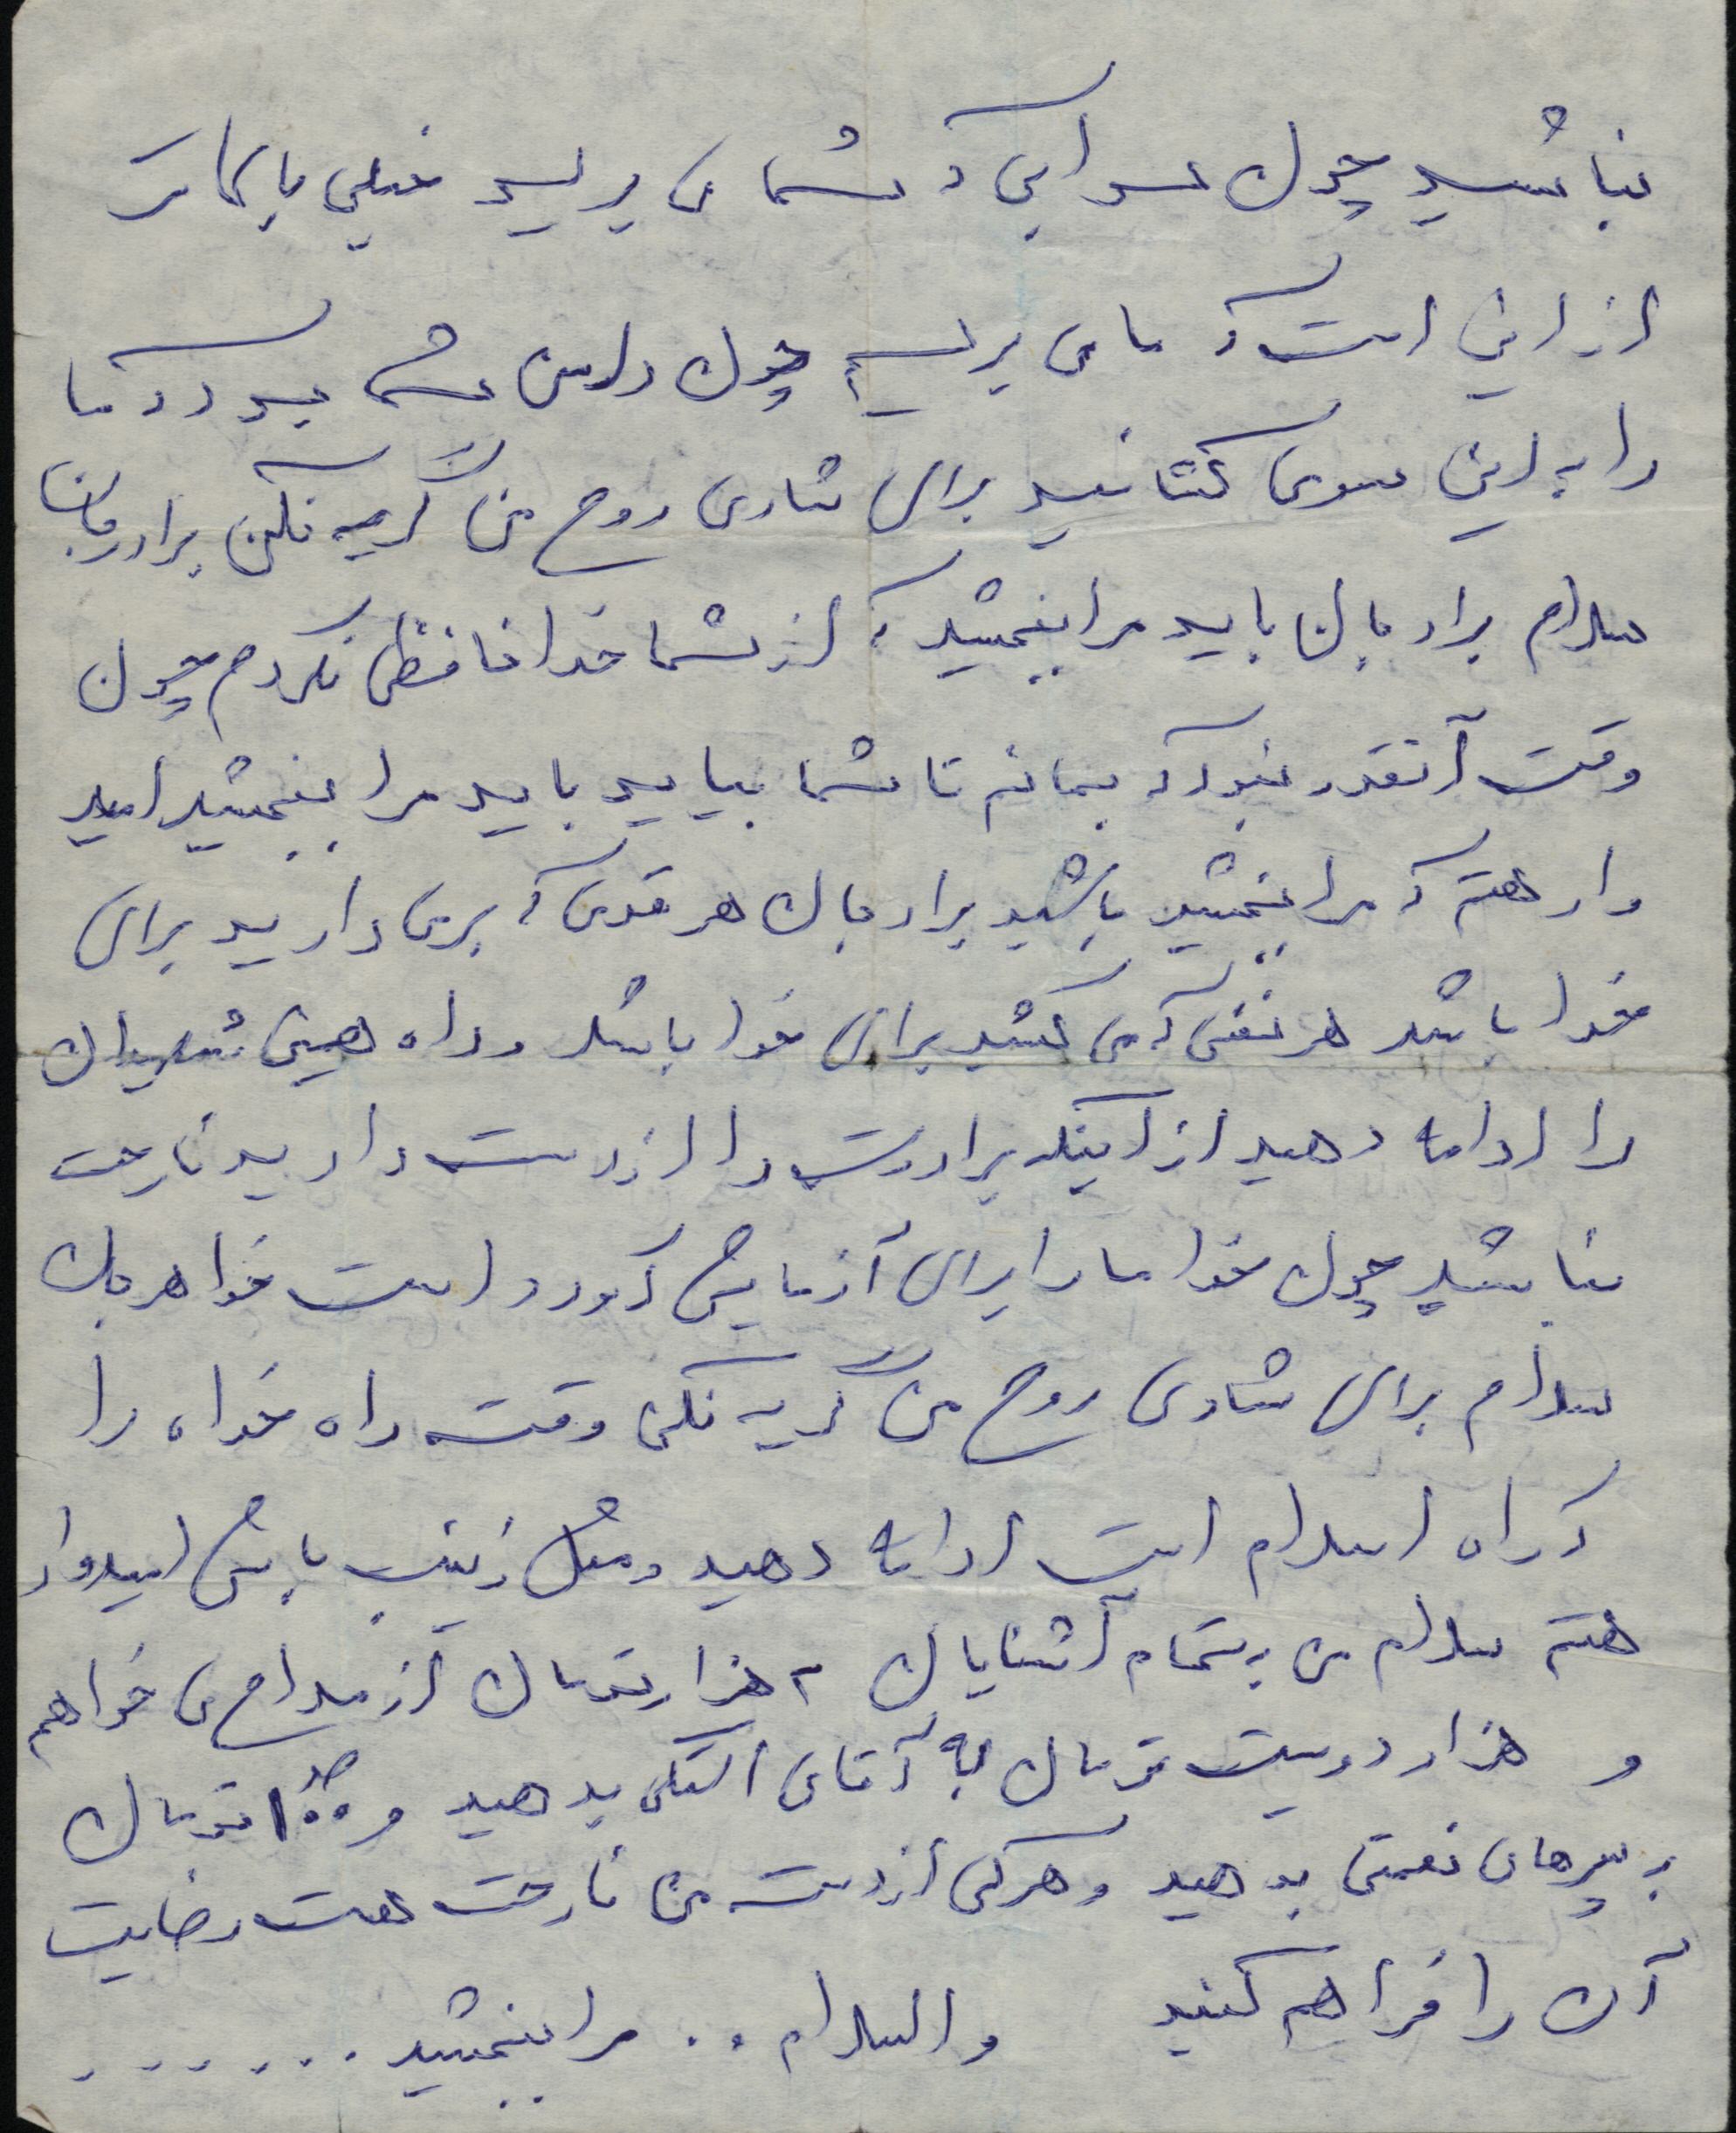 نباشید چون خدایی که شما می پرستید خیلی بالاتر
از این است که ما می پرستیم چون داشتن عشق بود که ما
را به این سوی کشانید برای شادی روح من گریه نکن برادرجان
سلام برادر جان باید مرا ببخشید که از شما خداحافظی نکردم چون
وقت آنقدر نبود که بمانم تا شما بیایید باید مرا ببخشید امید
وار هستم که مرا ببخشید باشید برادر جان هر قدمی که برمی دارید برای
خدا باشد هر نفسی که می کشید برای خدا باشد و راه همین شهیدان
را ادامه دهید از اینکه برادرت را از دست دادید ناراحت
نباشید چون خدا ما را برای آزمایش آورده است خواهرجان
سلام برای شادی روح من گریه نکن وقت راه خدا را
که راه اسلام است ادامه دهید و مثل زینب باش امیدوار
هستم سلام من به تمام آشنایان ۲ هزار تومان از مداح می خواهم
و هزار دویست تومان به آقای بدهید و ۱۰۰ تومان
به پسرهای نعمتی بدهید و هرکی از دست من ناراحت هست رضایت
آن را فراهم کنید والسلام .. مرا ببخشید .......